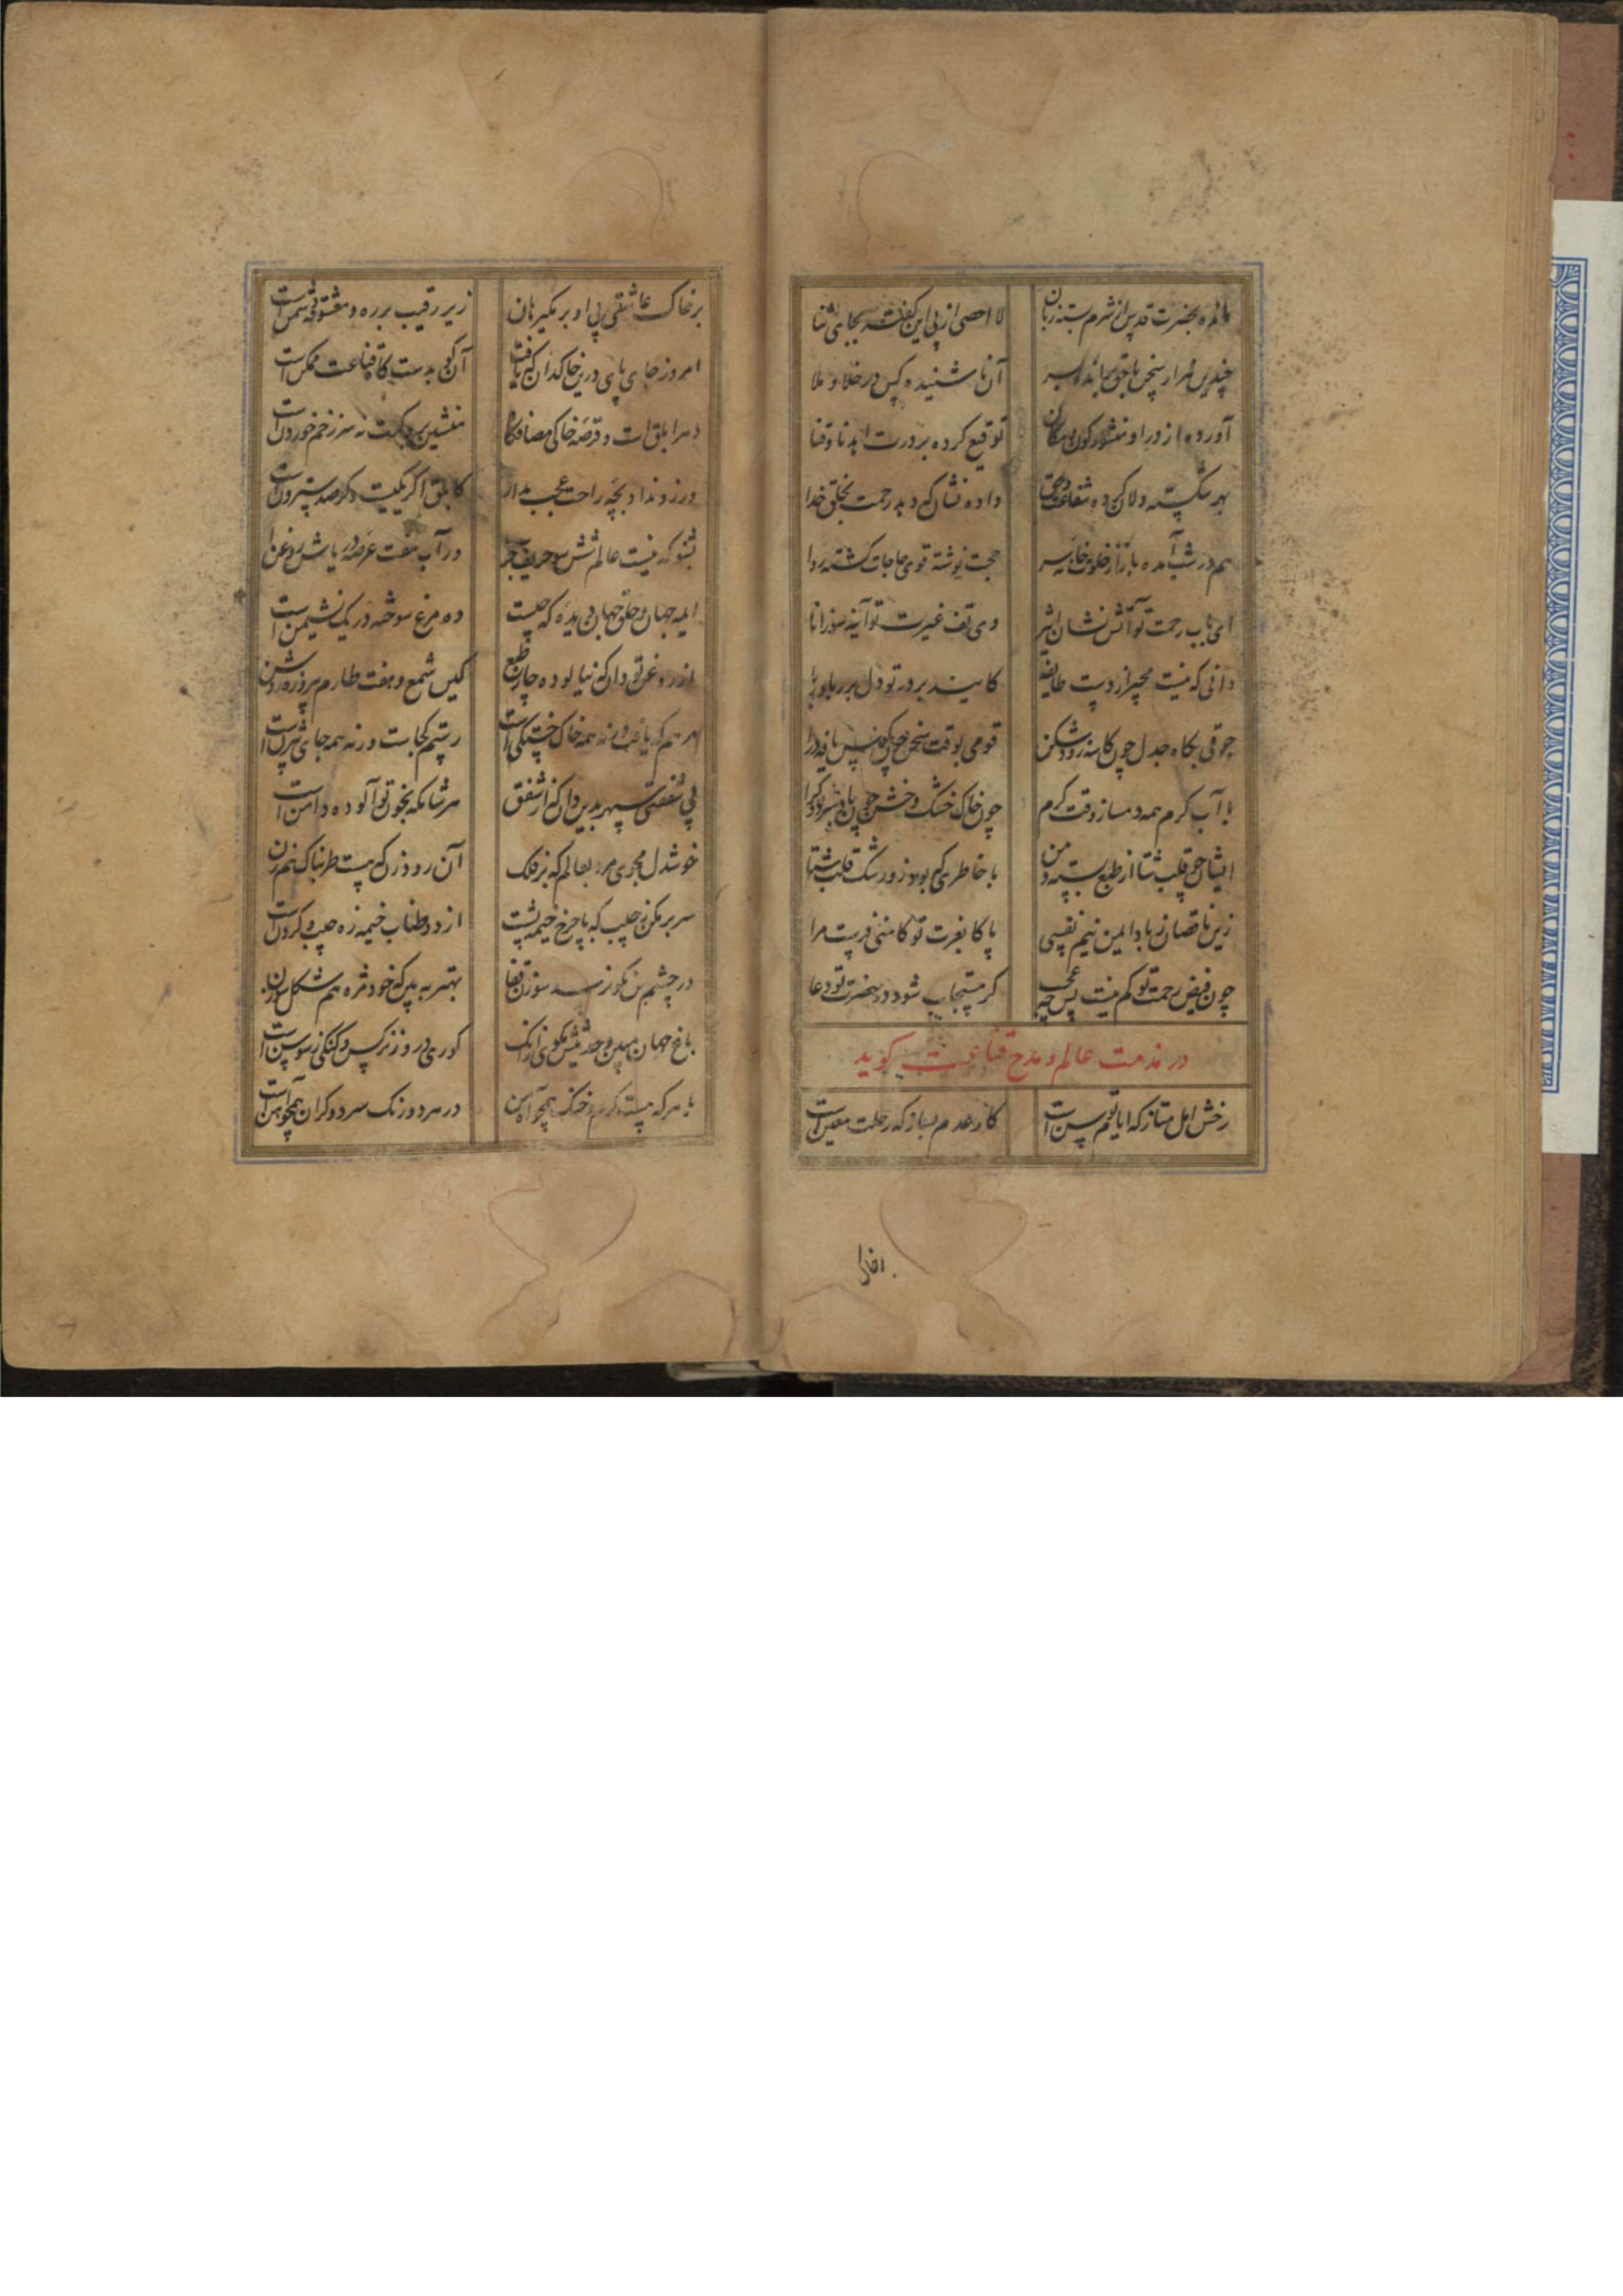 مانده بحضرت قدس از شرم بسته زبان
لا احصی از پی این گفته بجای ثنا
چندین هزار سخن با حق براند بسر
آن ناشنیده کس در خلا و ملا
آورده از در او منشور کون و مکان
توقیع کرده بدورت ابدنا وقنا
بهر شکسته دلان ده شفاعت حق
داده نشان که دهد رحمت بخلق خدا
هم در شب آمده باز از خلوتخانه سر
حجت نوشته قوی حاجات گشته روا
ای باب رحمت تو آتش نشان اثیر
وی تف غیرت تو آینه سوز انا
دانی که نیست بجز از دست طایفه
کایند بر در تو دل بر ریا و
جوقی بگاه جدل چون کاسه رودشکن
قومی بوقت سخن چون کوس یافه درا
با آب کرم همه دمساز وقت کرم
چون خاک خشک و خشن چون باد
ایشان چو قلب شتا از طبع بسته و من
با خاطری که بود زو رشک قلب شتا
زین ناقصان زبادا یمن نیم نفسی
پاکا بغیرت تو کامنی فرست مرا
چون فیض رحمت تو کم نیست پس چه عجب
گر مستجاب شود در حضرت تو دعا
در مذمت عالم و مدح قناعت گوید
رخش امل متاز که ایام توسن است
کار عدم بساز که رحلت معین است
افرا
بر خاک عاشقی پی او بر مگیر هان
زیرا رقیب بر ره و معشوقه دشمن است
امروز جای پای درین خاکدان که یافت
آن کو بدستگاه قناعت ممکن است
دهر ابلق است و قرصه خاکی مصافگاه
منشین برو که نه سر زخم خوردن است
ورزو نداد بچه راحت عجب مدار
کابلق اگر یکیست وگر صد سترون است
بشنو که نیست عالم شش سو حریف جر
در آب هفت عرصه دریاش روغن است
ایمه جهان و خلق جهان دیده که چیست
ده مرغ سوخته در یک نشیمن است
از روغن تو دان که نیالوده چار طبع
کین شمع و هفت طارم پیروزه روشن
مرهم که یافت ورنه همه خاک خستگی است
رستم کجاست ورنه همه جای بیژن است
بی شفقتی سپهر بدین دان که از شفق
هر شامگه بخون تو آلوده دامن است
خوشدل مجوی مرد بعالم که بر فلک
آن رود زن که هست طربناک هم زن
سر بر مکن بجیب که با چرخ خیمه پشت
از دو طناب خیمه زه جیب و گردن است
در چشم من نکو نرسد سوزن قضا
بهتر به بین که خود مژه هم شکل سوزن
باغ جهان مبین و حدیثش مگوی زانک
کوری درو ز نرگس و گنگی ز سوسن است
با هر که هست گرم و خنک همچو آهن
در هر دو رنگ سرد و گران همچو آهن است